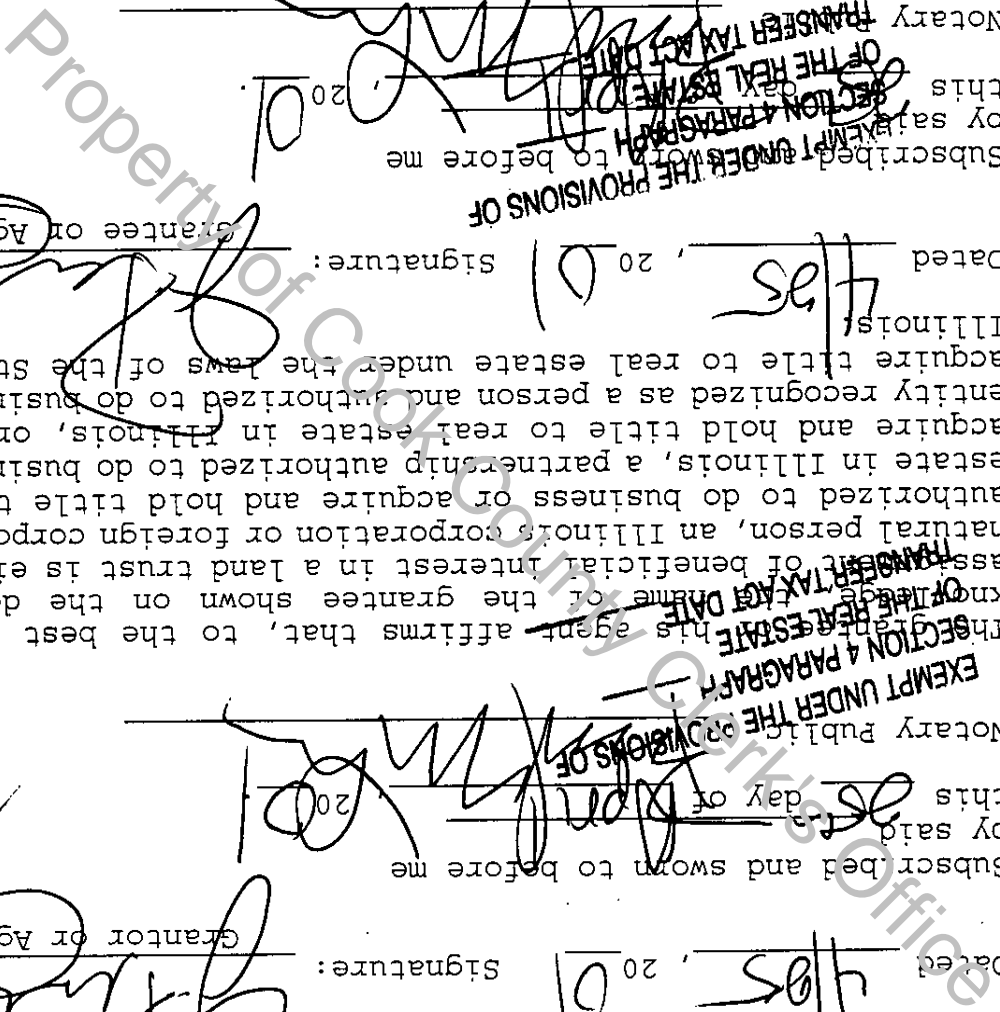 Dated 4/25, 20 01 Signature:
Grantor or Ag
Subscribed and sworn to before me
by said
this 25 day of April, 20 01.
Notary Public
EXEMPT UNDER THE PROVISIONS OF
SECTION 4 PARAGRAPH
OF THE REAL ESTATE
TRANSFER TAX ACT DATE
The grantee his agent affirms that, to the best
knowledge the name of the grantee shown on the de
assignment of beneficial interest in a land trust is ei
natural person, an Illinois corporation or foreign corpo
authorized to do business or acquire and hold title t
estate in Illinois, a partnership authorized to do busi
acquire and hold title to real estate in Illinois, or
entity recognized as a person and authorized to do busin
acquire title to real estate under the laws of the St
Illinois.
Dated 4/25, 20 01 Signature:
Grantee or Ag
EXEMPT UNDER THE PROVISIONS OF
SECTION 4 PARAGRAPH
OF THE REAL ESTATE
TRANSFER TAX ACT DATE
Subscribed and sworn to before me
by said
this 25 day April, 20 01.
Notary
Property of Cook County Clerk's Office